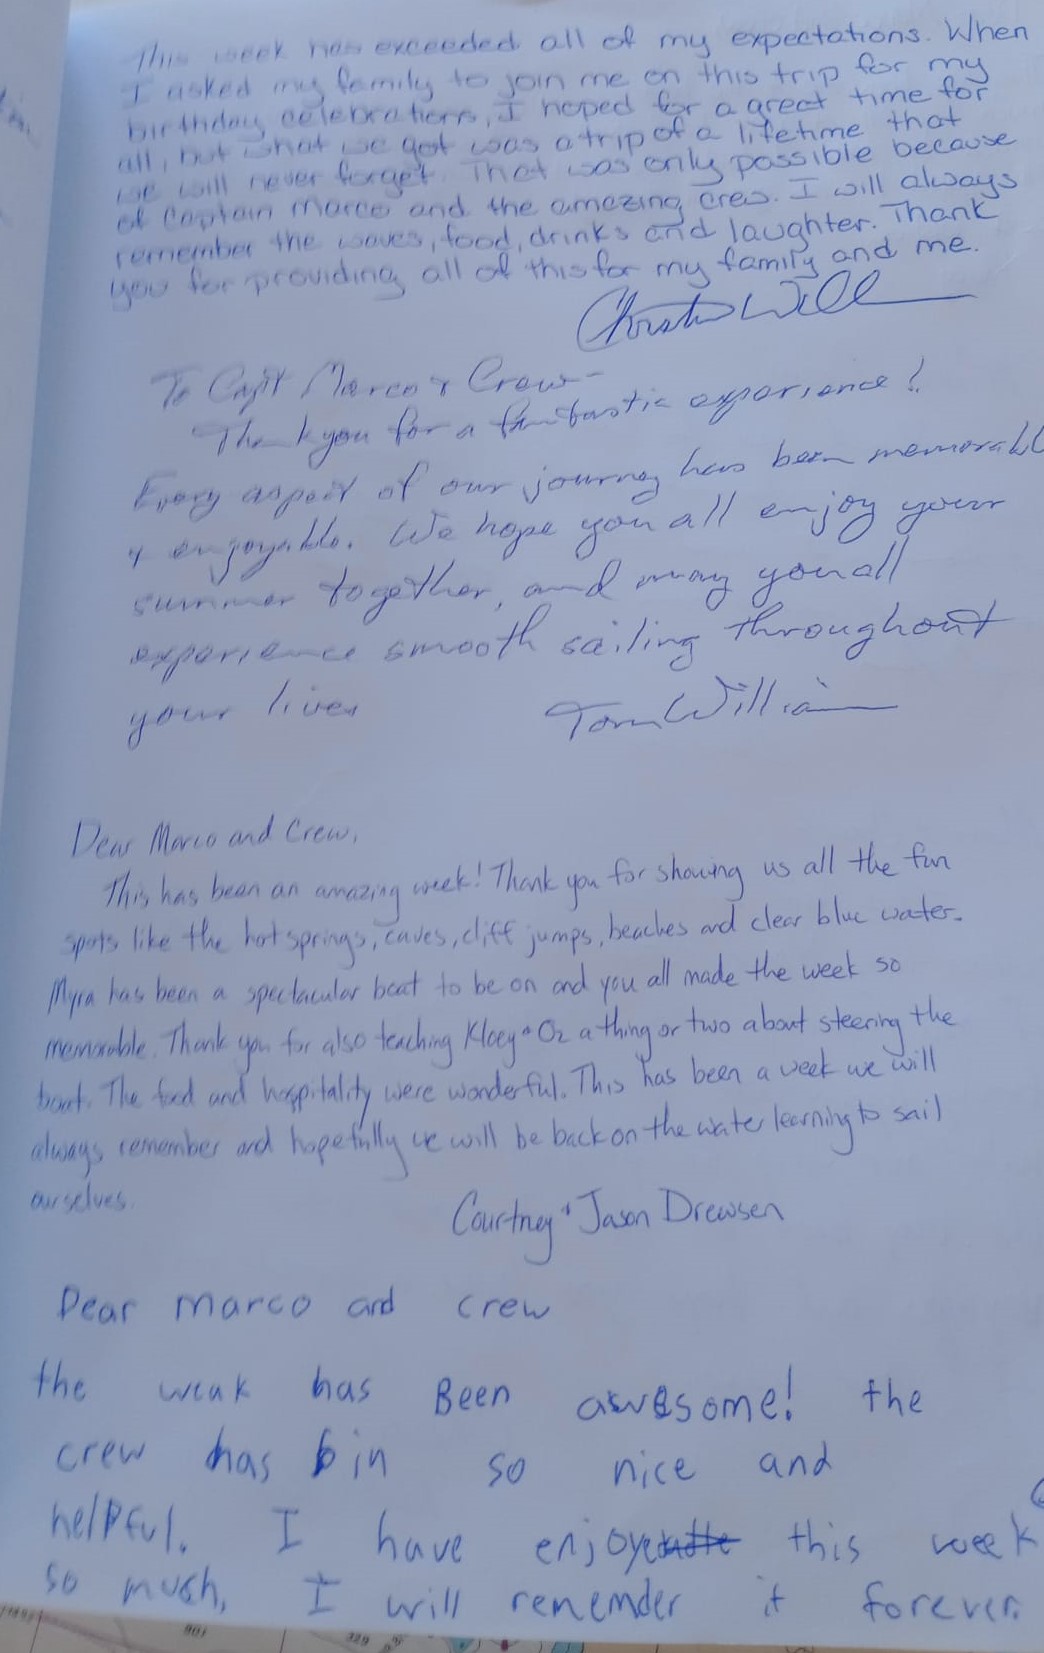 This week has exceeded all of my expectations. When
I asked my family to join me on this trip for my
birthday celebrations, I hoped for a great time for
all, but what we got was a trip of a lifetime that
we will never forget. That was only possible because
of Captain Marco and the amazing crew. I will always
remember the waves, food, drinks and laughter. Thank
you for providing all of this for my family and me.
To Capt Marco & Crew-
Thank you for a fantastic experience!
Every aspect of our journey has been memorabl
& enjoyable. We hope you all enjoy your
summer together, and may you all
experience smooth sailing throughout
your lives
Tom William
Dear Marco and Crew,
This has been an amazing week! Thank you for showing us all the fun
spots like the hot springs, caves, cliff jumps, beaches and clear blue water.
Myra has been a spectacular boat to be on and you all made the week so
memorable. Thank you for also teaching Kloey & Oz a thing or two about steering the
boat. The food and hospitality were wonderful. This has been a week we will
always remember and hopefully we will be back on the water learning to sail
ourselves.
Courtney & Jason Drewsen
Dear marco and crew
the weak has Been awesome! the
crew has bin so nice and
helpful. I have enjoye this week
so much, I will renemder it forever.
901
329